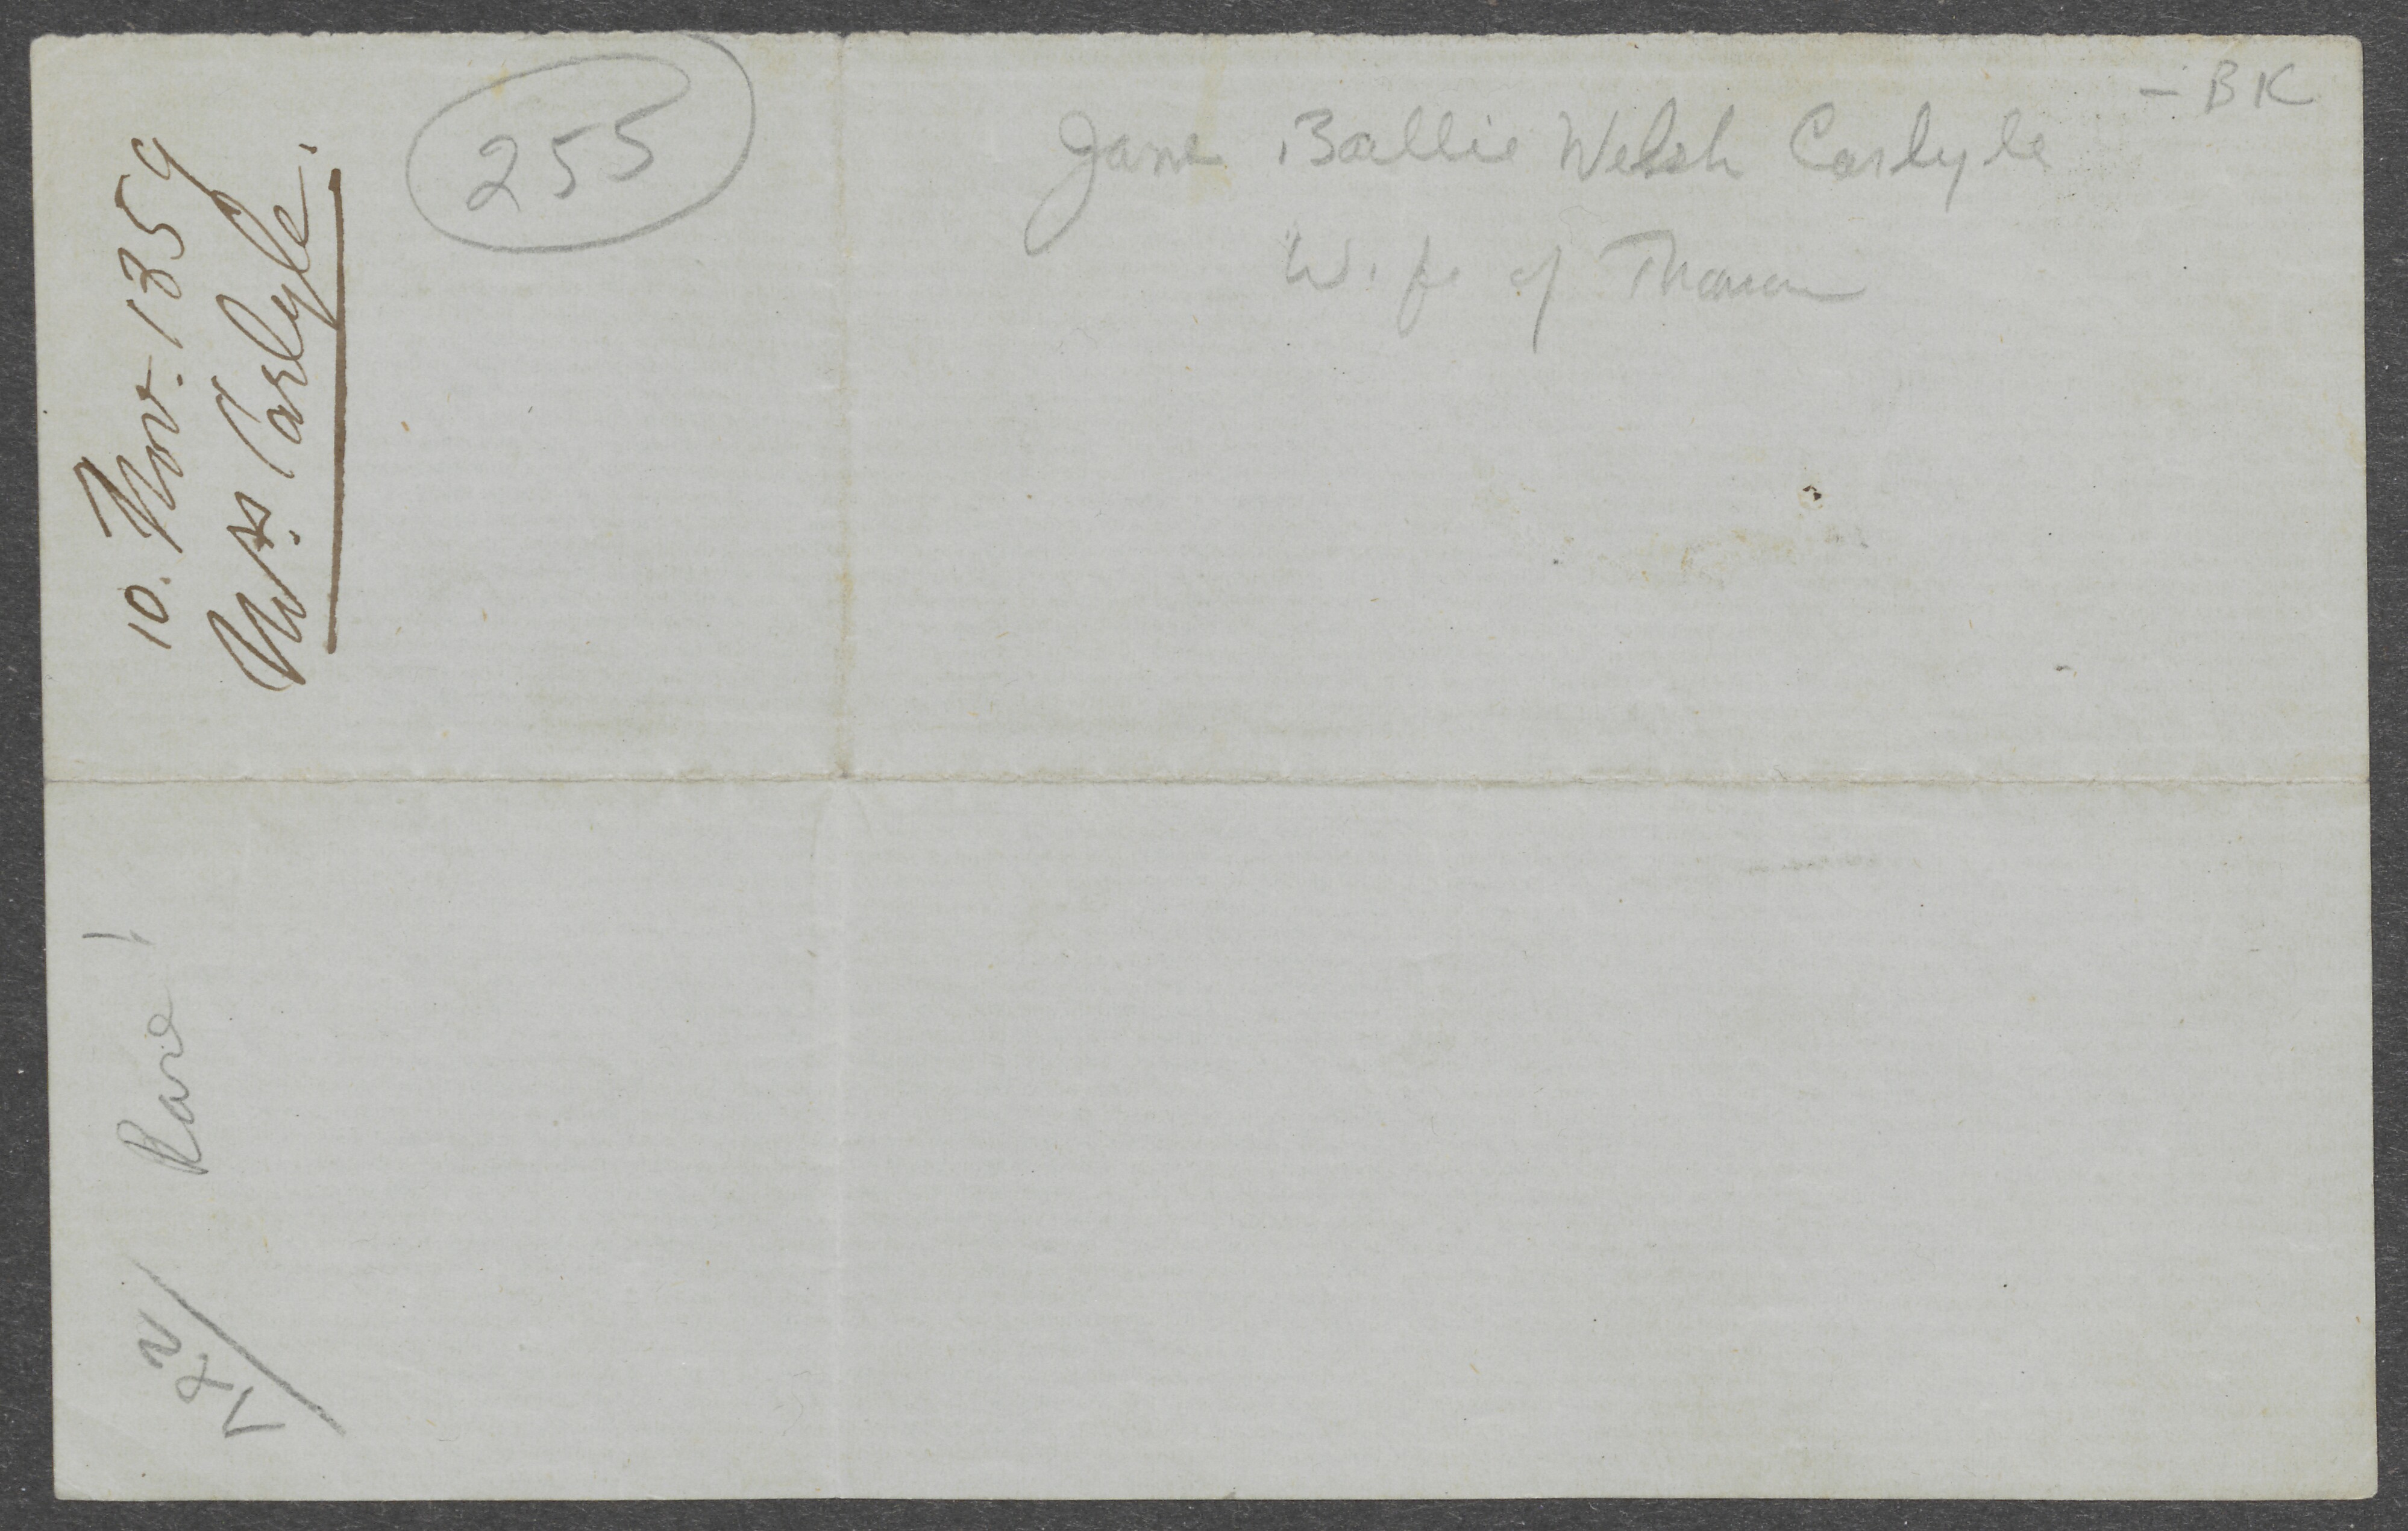 10. Nov. 1859
Mrs. Carlyle.
255
- BK
Jane Ballie Welsh Carlyle
Wife of Thomas
Rare!